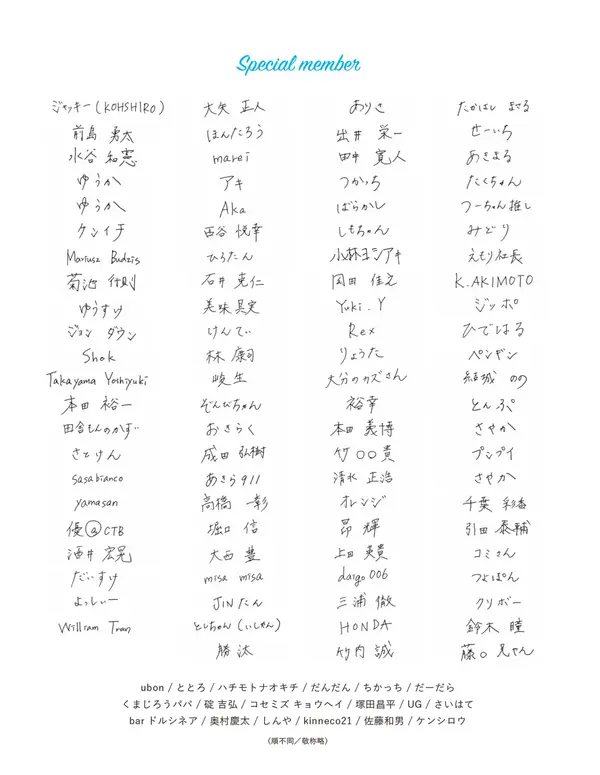 Special member
ジャッキー(KOHSHIRO) 大矢 正人 ありさ たかはし まさる
前島 勇太 ほんだろう 出井 栄一 せーいち
水谷 知憲 marei 田中 寛人 あきまる
ゆうか アキ つかっち たくちゃん
ゆうか Aka ばらかし つーちゃん推し
ケンイチ 西谷 悦幸 しもちゃん みどり
Mariusz Budzis ひろたん 小林ヨシアキ えもり社長
菊池 行則 石井 克仁 岡田 佳之 K.AKIMOTO
ゆうすけ 美味具実 Yuki.Y ジッポ
ジョン ダウン けんてぃ Rex ひではる
Shok 林 康司 りょうた ペンギン
Takayama Yoshiyuki 岐生 大分のカズさん 結城 のの
本田 裕一 ぞんびちゃん 裕幸 とんぷ
田舎もんのかず おきらく 本田 義博 さやか
さとけん 成田 弘樹 竹〇〇貴 プンプイ
sasabianco あきら911 清水 正浩 さやか
yamasan 高橋 一彰 オレンジ 千葉 彩香
優@CTB 堀口 信 昂輝 引田 泰輔
酒井 宏晃 大西 豊 上田 美貴 コミさん
だいすけ misa misa daigo006 つよぽん
よっしぃー JINたん 三浦 徹 クリボー
William Tran としちゃん(いしゃん) HONDA 鈴木 瞳
勝汰 竹内 誠 藤〇兄ゃん
ubon / ととろ / ハチモトナオキチ / だんだん / ちかっち / だーだら
くまじろうパパ / 碇 吉弘 / コセミズ キョウヘイ / 塚田昌平 / UG / さいはて
bar ドルシネア / 奥村慶太 / しんや / kinneco21 / 佐藤和男 / ケンシロウ
(順不同/敬称略)